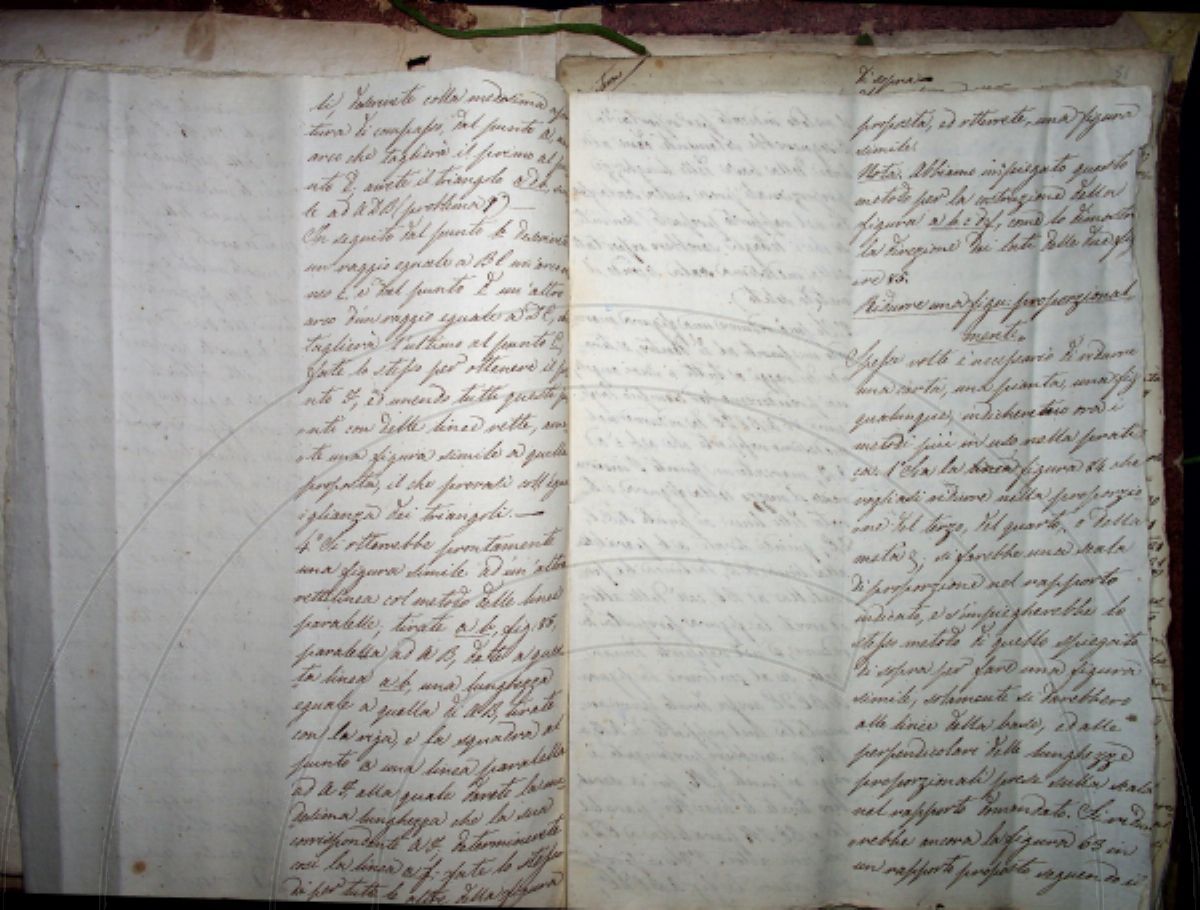 ti, descrivete colla medesima
tura di compasso, dal punto a, un
arco che taglierà il primo al pu
nto d, avrete il triangolo a d b
le ad A D B (problema 9)
In seguito dal punto b descrivete
un raggio eguale a B C un arco
e dal punto d un altro
arco d'un raggio eguale a D C,
taglierà l'ultimo al punto
fate lo stesso per ottenere il pu
nto f, ed unendo tutti questi pu
nti con delle linee rette, avre
te una figura simile a quella
proposta, il che provasi coll'egua
glianza dei triangoli.
4° Si otterrebbe prontamente
una figura simile ad un'altra
rettilinea col metodo delle linee
paralelle, tirate a b, fig. 85,
paralella ad A B, date a ques
ta linea a b, una lunghezza
eguale a quella di A B, tirate
con la riga, e la squadra al
punto a una linea paralella
ad A F, alla quale darete la me
desima lunghezza che la sua
corrispondente A F, determinerete
così la linea a f; fate lo stesso
di per tutti le altre della figura
Di sopra
proposta, ed otterrete, una figura
simile.
Nota. Abbiamo impiegato questo
metodo per la costruzione della
figura a b c d f, come lo dimostra
la direzione dei lati delle due fig
ure 85.
Ridurre una figu: proporzional
mente.
Spesse volte è necessario di ridurre
una carta, una pianta, una fig
qualunque, indicheremo ora i
metodi più in uso nella prati
ca. 1° Sia la figura 84 che
vogliasi ridurre nella proporzio
ne del terzo, del quarto, o della
metà &, si farebbe una scala
di proporzione nel rapporto
indicato, e s'impiegherebbe lo
stesso metodo di quello spiegato
di sopra per fare una figura
simile, solamente si darebbero
alle linee della base, ed alle
perpendicolari delle lunghezze
proporzionali prese sulla scala
nel rapporto domandato. Si ridur
rebbe ancora la figura 63 in
un rapporto proposto seguendo il